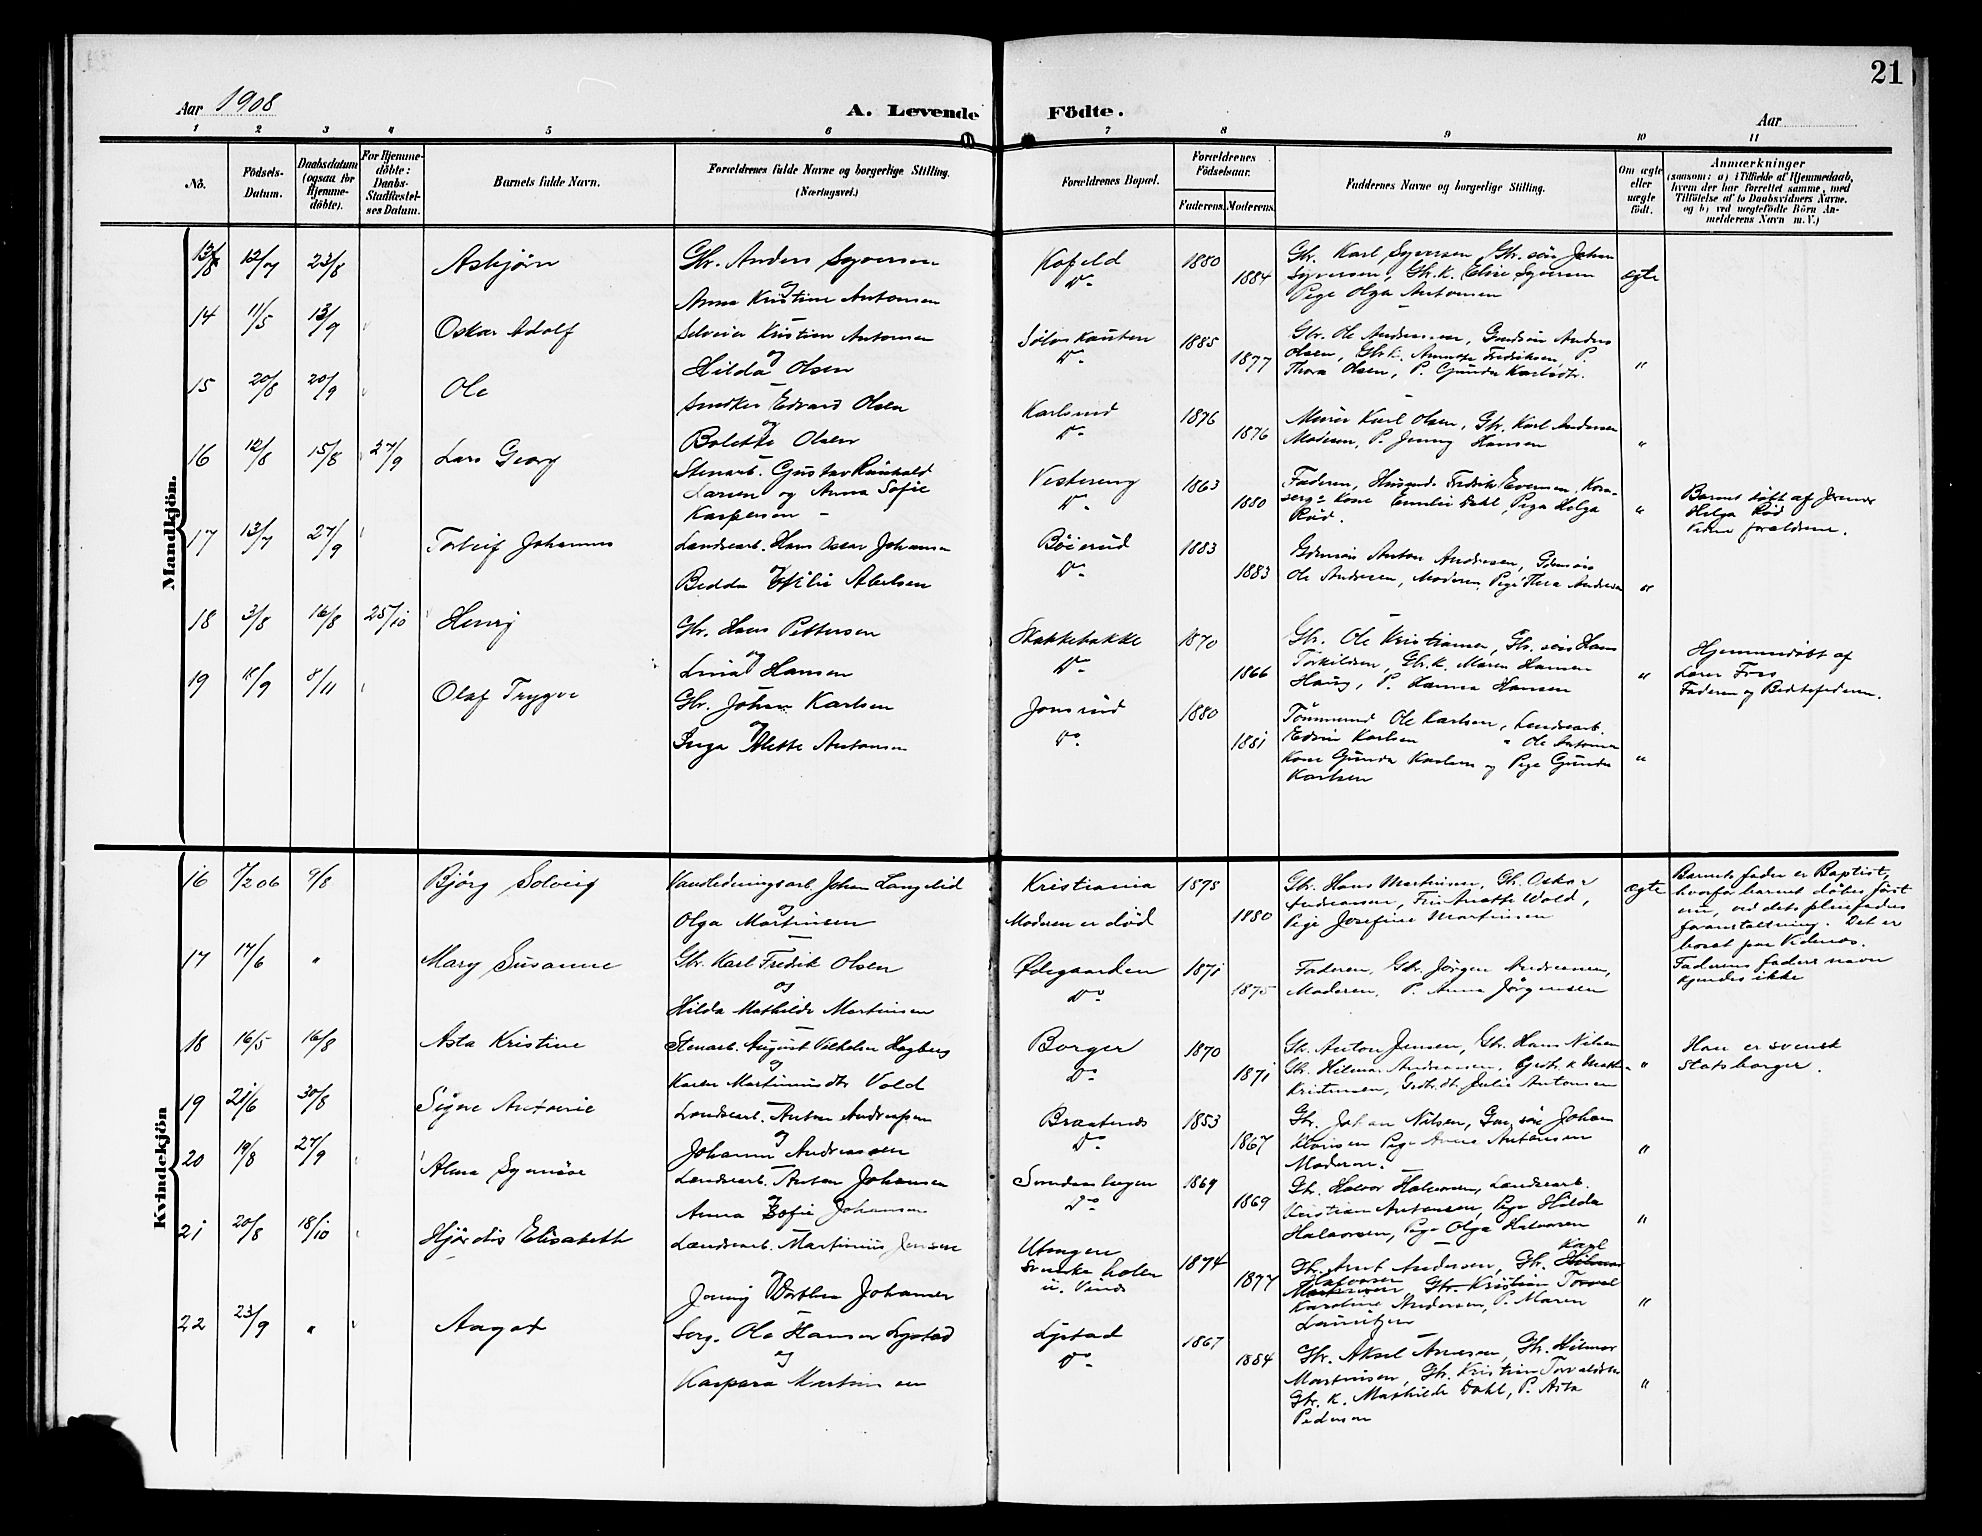 21
Aar 1908
A. Levende Födte.
Aar
1 2 3 4 5 6 7 8 9 10 11
No.
Födsels-Datum.
Daabsdatum (ogsaa for Hjemme-döbte).
For Hjemme-döbte: Daabs-Stadfæstel-ses Datum.
Barnets fulde Navn.
Forældrenes fulde Navne og borgerlige Stilling.
(Næringsvei.)
Forældrenes Bopæl.
Forældrenes Födselsaar.
Faderens. Moderens.
Faddernes Navne og borgerlige Stilling.
Om ægte eller uægte födt.
Anmærkninger
(saasom: a) i Tilfælde af Hjemmedaab,
hvem der har forrettet samme, med
Tilföielse af to Daabsvidners Navne.
og b) ved uægtefödte Börn An-
melderens Navn m. V.)
Mandkjön.
12/7 23/8 Asbjørn
Gbr. Anders Syversen
og
Anna Kristine Antonsen
Kofeld
Do
1880
1884
Gbr. Karl Syversen, Gbr. søn Johan
Syversen, Gbr. k. Elise Syversen
Pige Olga Antonsen
ægte
14 11/5 13/9 Oskar Adolf
Selveier Kristian Antonsen
og
Hilda Olsen
Do
1885
1877
Gbr. Ole Andreassen, Anders
Olsen, Gbr. k. Fredriksen, P.
Thora Olsen, P. Gunda Karlsdtr.
"
15 20/8 20/9 Ole
Smed Edvard Olsen
og
Bolette Olsen
Karlsrud
Do
1876
1876
Murer Karl Olsen, Gbr. Karl Andersen
Moderen, P. Jenny Hansen
"
16 12/8 15/8 27/9 Lars Georg
Stenarb. Gustav Reinhold
Larsen og Anna Sofie
Kaspersen
Vestereng
Do
1863
1880
Faderen, Husmand Fredrik Evensen,
kone Emilie Dahl, Pige Helga
Rød.
"
Barnet døbt af Jremor
Helga Rød
Vidne forældrene.
17 13/7 27/9 Torleif Johannes
Landsarb. Hans Oscar Johansen
og
Bedda Emilie Abelsen
Böierud
Do
1883
1883
Anton Andresen,
Ole Andresen, Moderen, Pige Thea Andresen
"
18 3/8 16/8 25/10 Henry
Gbr. Hans Pettersen
og
Lina Hansen
Stakkebakke
Do
1870
1866
Gbr. Ole Kristiansen, Gbr. søn Hans
Torkildsen, Gbr. k. Maren Hansen
Haug, P. Hanna Hansen
"
Hjemmedøbt af
Lærer Foss
Faderen og Bedstefaderen.
19 18/9 8/11 Olaf Trygve
Gbr. Johan Karlsen
og
Inga Alette Antonsen
Jonsrud
Do
1880
1881
Tömmermd Ole Karlsen, Landsarb.
Edvin Karlsen " Ole Antonsen
Kone Gunda Karlsen og Pige Gunda
Karlsen
"
Kvindekjön
16 7/2 06 9/8 Bjørg Solveig
Vandledningsarb. Johan Langelid
og
Olga Martinsen
Kristiania
Moderen er død
1878
1880
Gbr. Hans Martinsen, Gbr. Oskar
Andreassen, Fru Anette Wold,
Pige Josefine Martinsen
ægte
Barnets fader er Baptist,
hvorfor barnet døbes først
nu, ved dets pleiefaders
foranstaltning. Det er
bosat paa Videnæs.
Faderens faders navn
kjendes ikke
17 17/6 " Mary Susanne
Gbr. Karl Fredrik Olsen
og
Hilda Mathilde Martinsen
Ødegaarden
Do
1871
1875
Faderen, Gbr. Jörgen Andreasen,
Moderen, P. Anna Jörgensen
18 16/5 16/8 Asta Kristine
Stenarb. August Vilhelm Hagberg
og
Karen Martinusdtr Vold
Borger
Do
1870
1871
Gbr. Anton Jensen, Gbr. Hans Nilsen
Gbr. Hilmar Andreassen,
Kristensen, Julie Antonsen
"
Han er svensk
Statsborger.
19 21/6 30/8 Signe Antonie
Landsarb. Anton Andreassen
og
Johanne Andreassen
Braatenes
Do
1853
1867
Gbr. Johan Nilsen, Johan
Pige Anna Antonsen
Moderen.
"
20 19/8 27/9 Alma Synnöve
Landsarb. Anton Johansen
og
Anna Sofie Johansen
Do
1869
1869
Gbr. Halvor Halvorsen, Landsarb.
Kristian Antonsen, Pige Hilda
Halvorsen, Pige Olga Halvorsen
"
21 20/8 18/10 Hjørdis Elisabeth
Landsarb. Martinius Jensen
og
Jenny Dorthea Johansen
Utengen
Svenskeholen
u. Vinds
1874
1877
Gbr. Arnt Andersen, Gbr. Karl
Halvorsen Gbr. Kristian Torval
Karoline Andersen, P. Maren
Lauritzen
"
22 23/9 " Aagot
Sorg. Ole Hansen Lystad
og
Kaspara Martinsen
Lystad
Do
1867
1884
Gbr. Aksel Arnesen, Gbr. Hilmar
Martinsen, Gbr. Kristian Torvaldsen
Gbr. K. Mathilde Dahl, P. Asta
Pedersen
"